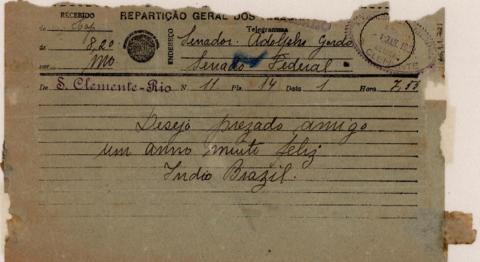 RECEBIDO
REPARTIÇÃO GERAL DOS
Telegramma
de
de 8,20
ENDEREÇO
Senador Adolpho Gordo
Senado Federal
De S. Clemente-Rio N. 11 Pls. 14 Data 1 Hora 7.53
Desejo prezado amigo
um anno muito feliz
Indio Brazil.